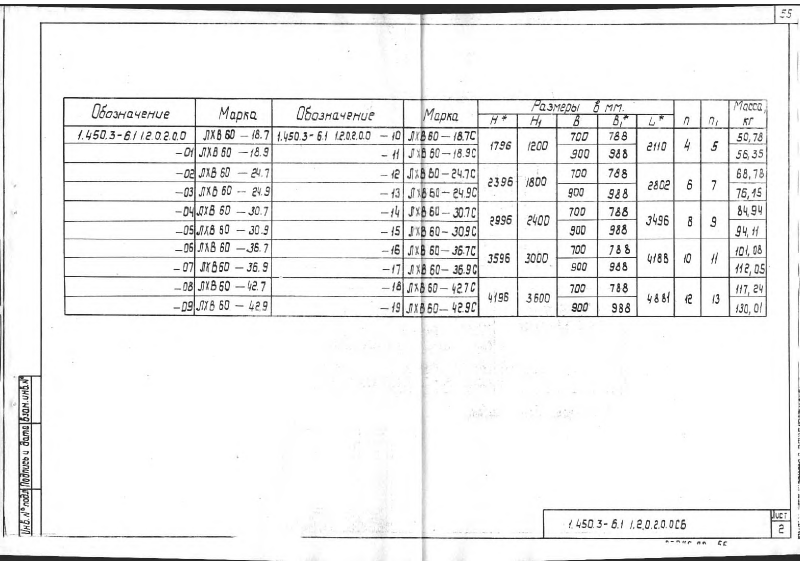 55
Обозначение Марка Обозначение Марка Размеры в мм. n n₁ Масса, кг
H* H₁ B B₁* L*
1.450.3-6.1 1.2.0.2.0.0 ЛХВ 60 — 18.7 1.450.3-6.1 1.2.0.2.0.0 — 10 ЛХВ 60 — 18.7С 1796 1200 700 788 2110 4 5 50,78
— 01 ЛХВ 60 — 18.9 — 11 ЛХВ 60 — 18.9С 900 988 56,35
— 02 ЛХВ 60 — 24.7 — 12 ЛХВ 60 — 24.7С 2396 1800 700 788 2802 6 7 68,78
— 03 ЛХВ 60 — 24.9 — 13 ЛХВ 60 — 24.9С 900 988 76,15
— 04 ЛХВ 60 — 30.7 — 14 ЛХВ 60 — 30.7С 2996 2400 700 788 3496 8 9 84,94
— 05 ЛХВ 60 — 30.9 — 15 ЛХВ 60 — 30.9С 900 988 94,11
— 06 ЛХВ 60 — 36.7 — 16 ЛХВ 60 — 36.7С 3596 3000 700 788 4188 10 11 101,08
— 07 ЛХВ 60 — 36.9 — 17 ЛХВ 60 — 36.9С 900 988 112,05
— 08 ЛХВ 60 — 42.7 — 18 ЛХВ 60 — 42.7С 4196 3600 700 788 4881 12 13 117,24
— 09 ЛХВ 60 — 42.9 — 19 ЛХВ 60 — 42.9С 900 988 130,01
Инв.№ подл. Подпись и дата Взам.инв.№
1.450.3-6.1 1.2.0.2.0.0СБ
Лист
2